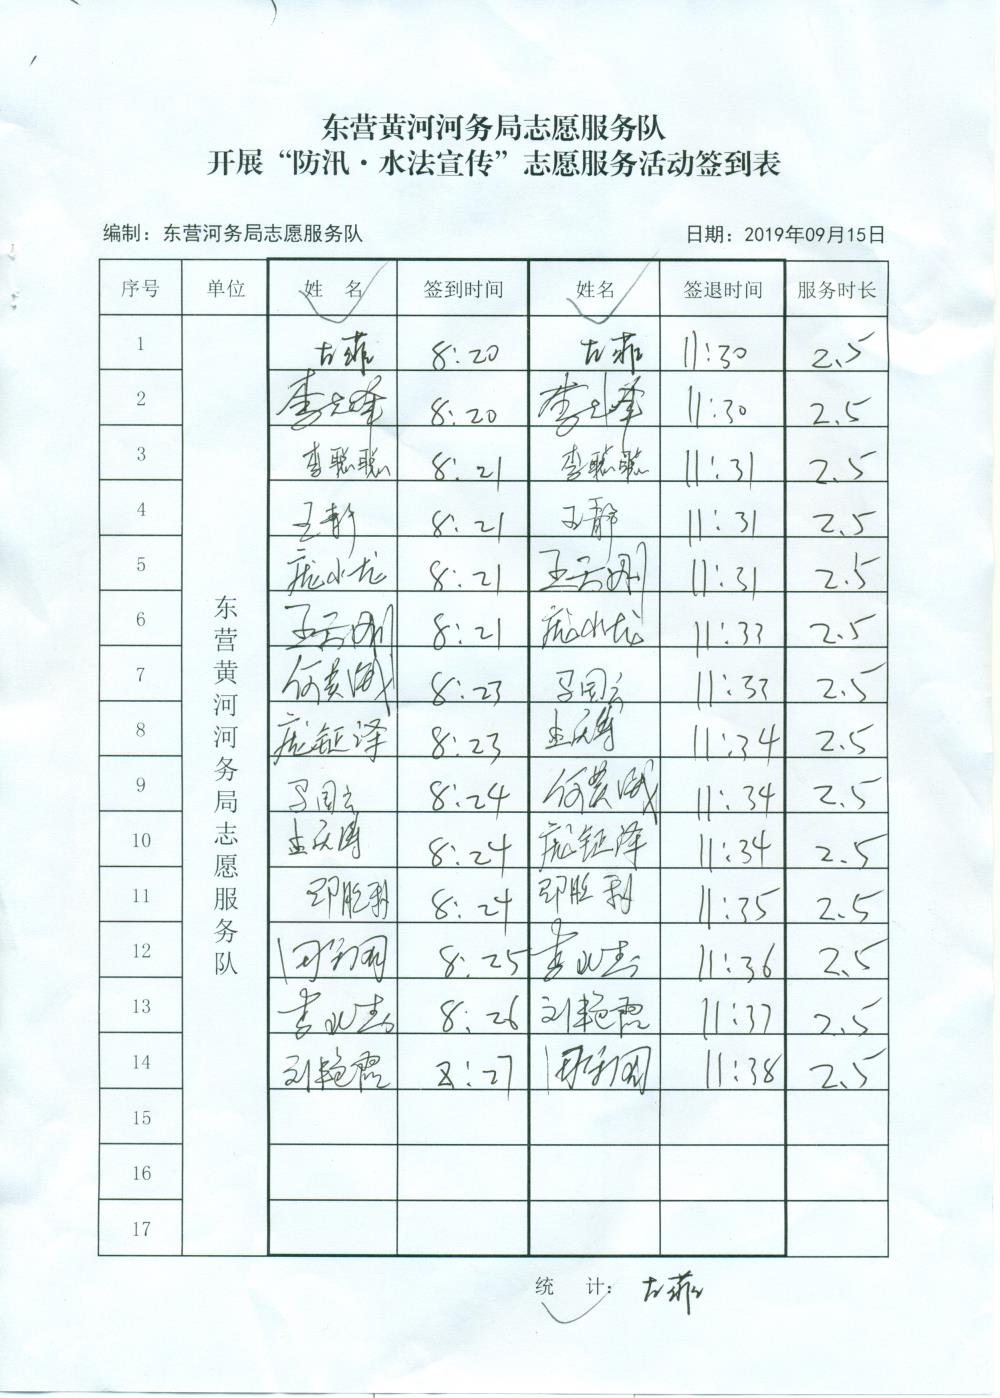 东营黄河河务局志愿服务队
开展“防汛·水法宣传”志愿服务活动签到表
编制：东营河务局志愿服务队 日期：2019年09月15日
序号 单位 姓 名 签到时间 姓名 签退时间 服务时长
东营黄河河务局志愿服务队
1 左菲 8:20 左菲 11:30 2.5
2 8:20 11:30 2.5
3 李聪聪 8:21 李聪聪 11:31 2.5
4 王静 8:21 王静 11:31 2.5
5 庞水龙 8:21 王云刚 11:31 2.5
6 王云刚 8:21 庞水龙 11:33 2.5
7 何贵成 8:23 马国云 11:33 2.5
8 庞钲泽 8:23 11:34 2.5
9 马国云 8:24 何贵成 11:34 2.5
10 8:24 庞钲泽 11:34 2.5
11 邓胜利 8:24 邓胜利 11:35 2.5
12 8:25 11:36 2.5
13 8:26 刘艳霞 11:37 2.5
14 刘艳霞 8:27 11:38 2.5
15
16
17
统 计： 左菲